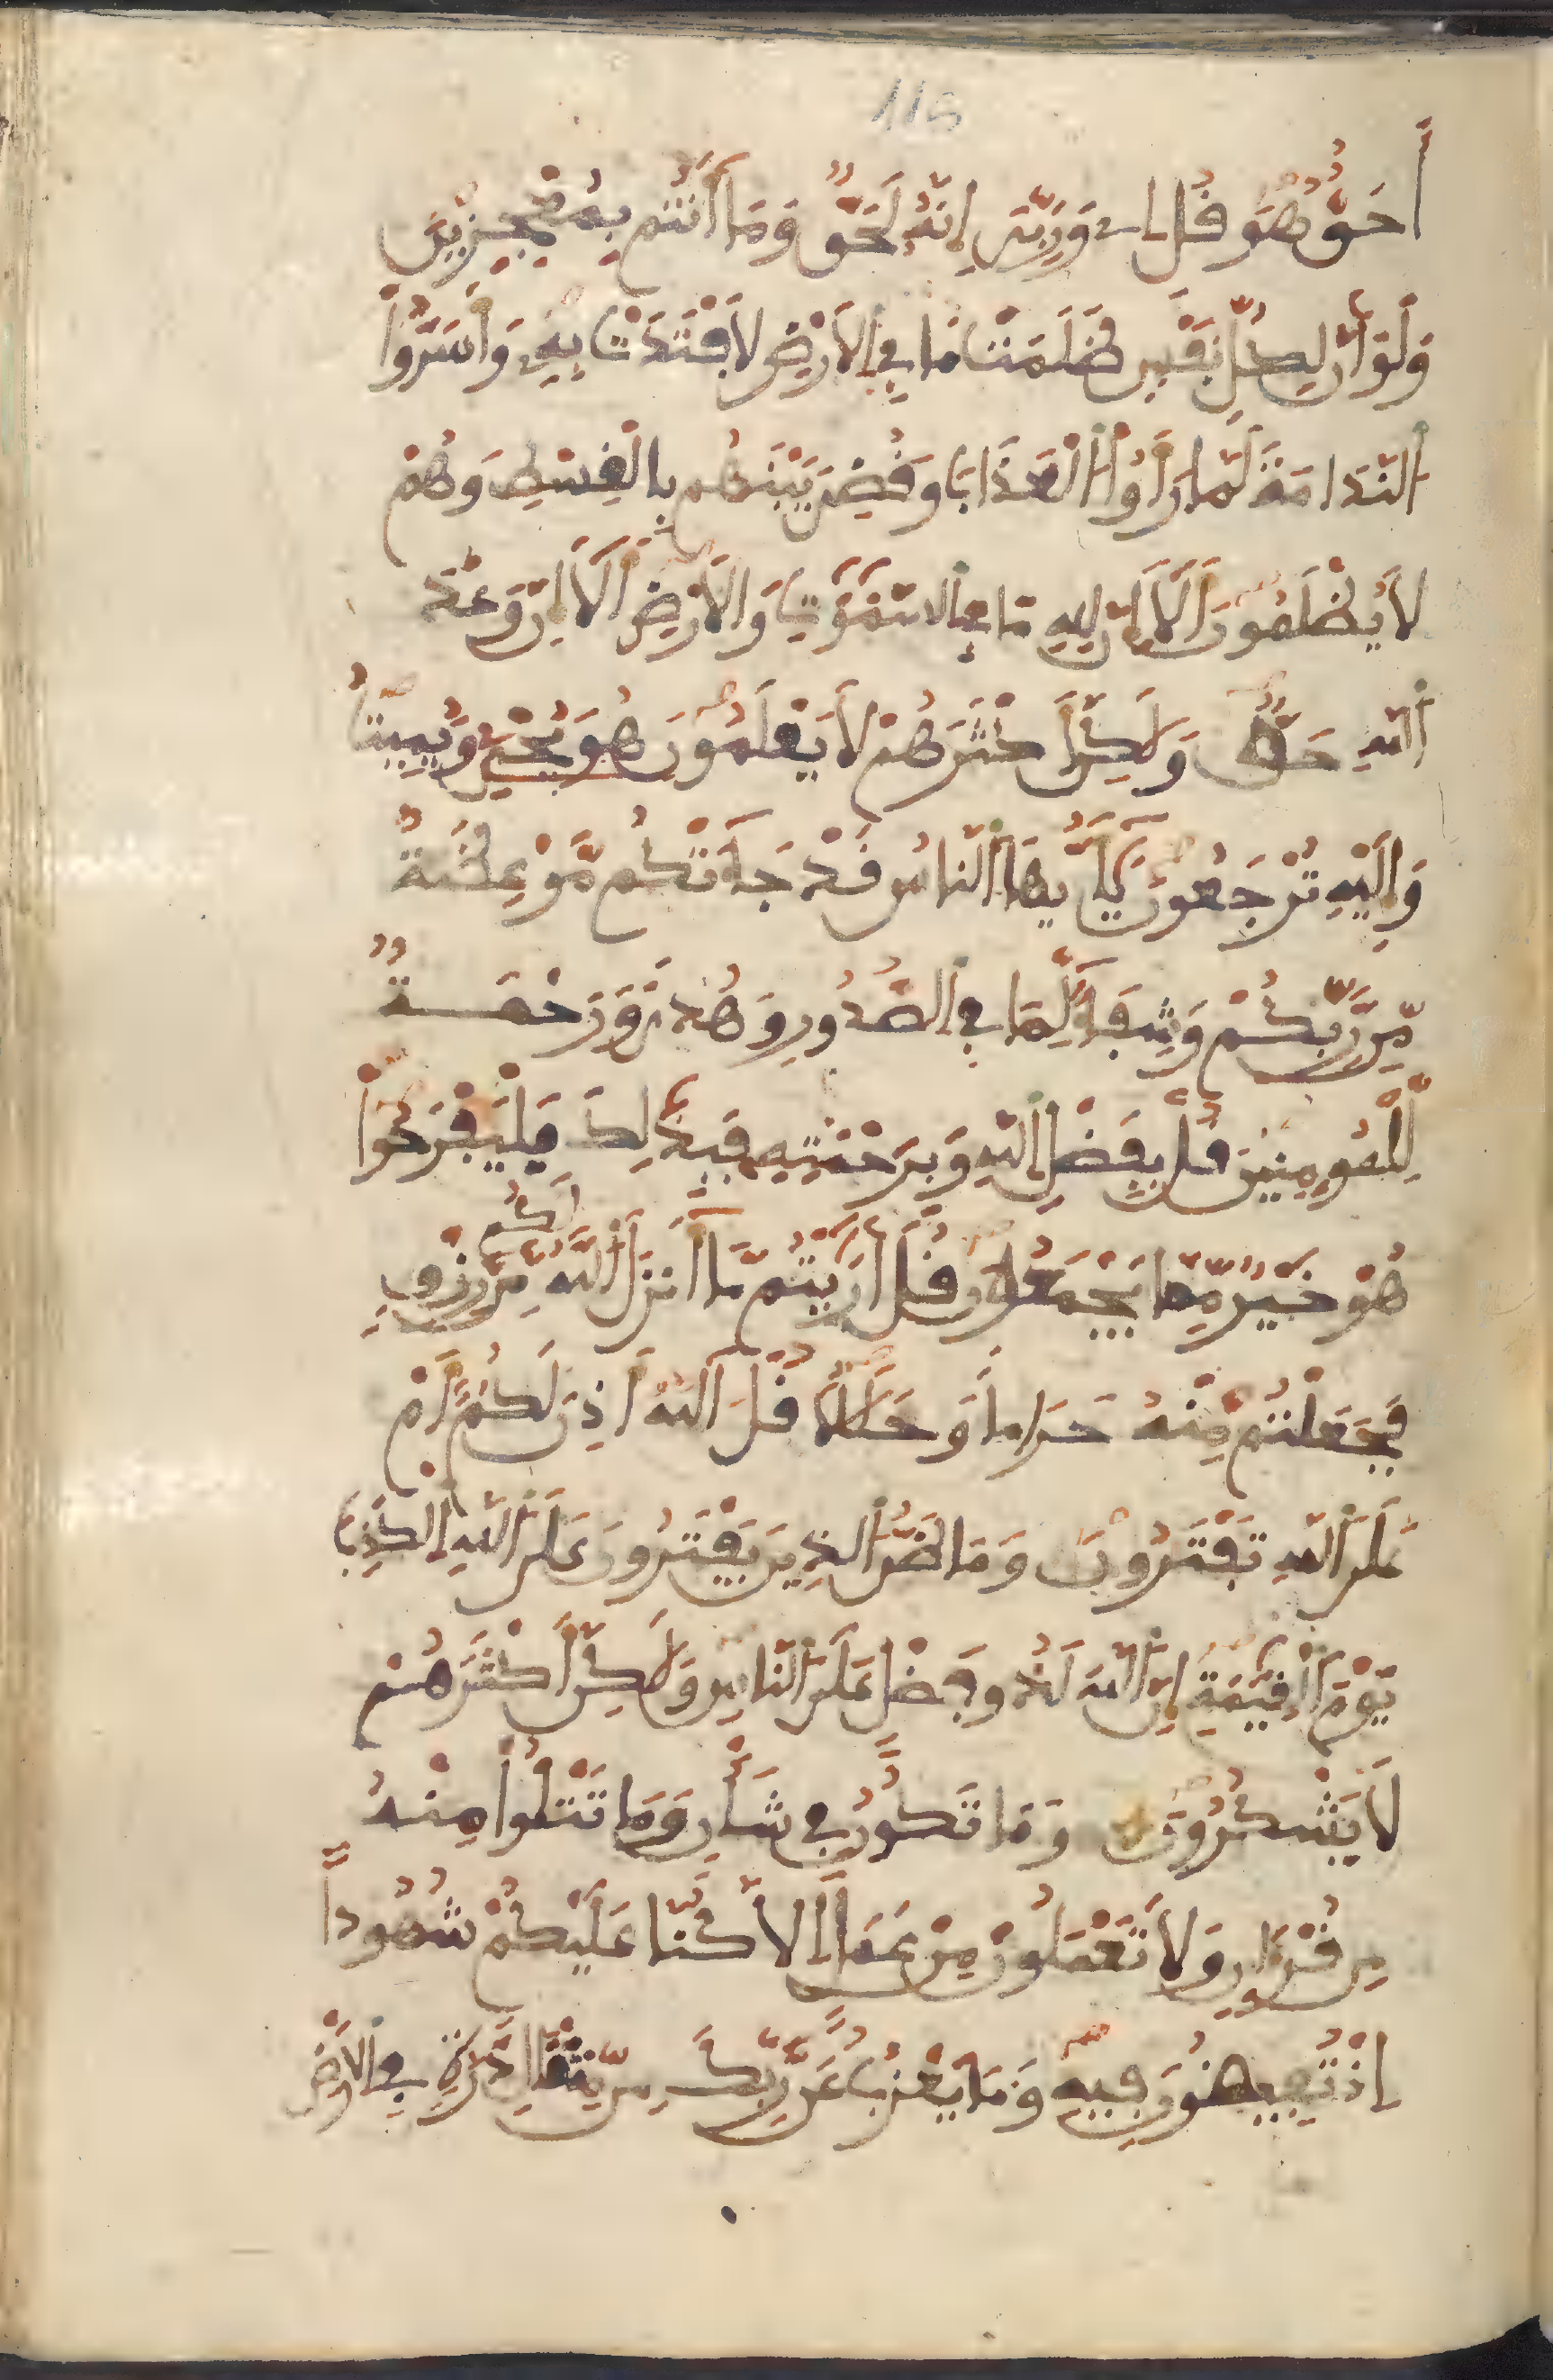 115
أَحَقٌّ هُوَ قُلْ إِے وَرَبِّيَ إِنَّهُ لَحَقٌّ وَمَا أَنتُم بِمُعْجِزِينَ
وَلَوَ أَنَّ لِكُلِّ نَفْسٍ ظَلَمَتْ مَا فِي اَلَارْضِ لَافْتَدَتْ بِهِ وَأَسَرُّواْ
اُلنَّدَامَةَ لَمَّا رَأَوُاْ اُلْعَذَابَ وَقُضِيَ بَيْنَهُم بِالْقِسْطِ وَهُمْ
لَا يُظْلَمُونَ أَلَا إِنَّ لِلهِ مَا فِي اِلسَّمَٰوَٰتِ وَالَارْضِ أَلَا إِنَّ وَعْدَ
اَللَّهِ حَقٌّ وَلَٰكِنَّ أَكْثَرَهُمْ لَا يَعْلَمُونَ هُوَ يُحْيِ وَيُمِيتُ
وَإِلَيْهِ تُرْجَعُونَ يَٰأَيُّهَا اَلنَّاسُ قَدْ جَآءَتْكُم مَّوْعِظَةٌ
مِّن رَّبِّكُمْ وَشِفَآءٌ لِّمَا فِي اِلصُّدُورِ وَهُدىً وَرَحْمَةٌ
لِّلْمُومِنِينَ قُلْ بِفَضْلِ اِللَّهِ وَبِرَحْمَتِهِ فَبِذَٰلِكَ فَلْيَفْرَحُواْ
هُوَ خَيْرٌ مِّمَّا يَجْمَعُونَ قُلَ أَرَٰيْتُم مَّا أَنزَلَ اَللَّهُ لَكُم مِّن رِّزْقٍ
فَجَعَلْتُم مِّنْهُ حَرَاماً وَحَلَٰلًا قُلَ آللَّهُ أَذِنَ لَكُمْ أَمْ
عَلَى اَللَّهِ تَفْتَرُونَ وَمَا ظَنُّ اُلذِينَ يَفْتَرُونَ عَلَى اَللَّهِ اِلْكَذِبَ
يَوْمَ اَلْقِيَٰمَةِ إِنَّ اَللَّهَ لَذُو فَضْلٍ عَلَى اَلنَّاسِ وَلَٰكِنَّ أَكْثَرَهُمْ
لَا يَشْكُرُونَ وَمَا تَكُونُ فِي شَأْنٍ وَمَا تَتْلُواْ مِنْهُ
مِن قُرْءَانٍ وَلَا تَعْمَلُونَ مِنْ عَمَلٍ إِلَّا كُنَّا عَلَيْكُمْ شُهُوداً
إِذْ تُفِيضُونَ فِيهِ وَمَا يَعْزُبُ عَن رَّبِّكَ مِن مِّثْقَالِ ذَرَّةٍ فِي اِلَارْضِ